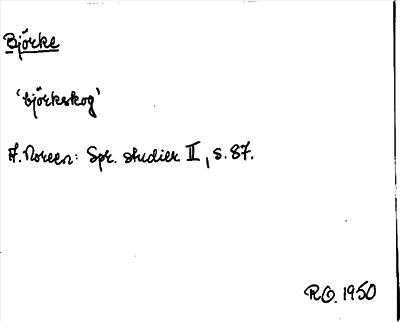 Björke
'björkskog'
A. Noreen: Spr. studier II, s. 87.
R.O. 1950